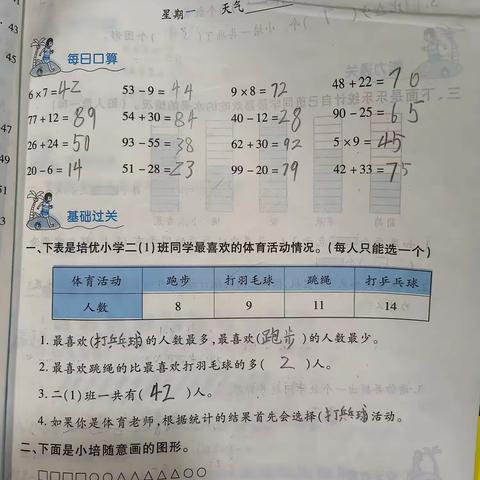 星期一 天气
43
45
每日口算
6×7=42 53-9=44 9×8=72 48+22=70
77+12=89 54+30=84 40-12=28 90-25=65
26+24=50 93-55=38 62+30=92 5×9=45
20-6=14 51-28=23 99-20=79 42+33=75
47
49
51
3
基础过关
一、下表是培优小学二(1)班同学最喜欢的体育活动情况。(每人只能选一个)
体育活动 跑步 打羽毛球 跳绳 打乒乓球
人数 8 9 11 14
1.最喜欢(打乒乓球)的人数最多,最喜欢(跑步)的人数最少。
2.最喜欢跳绳的比最喜欢打羽毛球的多(2)人。
3.二(1)班一共有(42)人。
4.如果你是体育老师,根据统计的结果首先会选择(打乒乓球)活动。
二、下面是小培随意画的图形。
□□□□△△△△△△○○